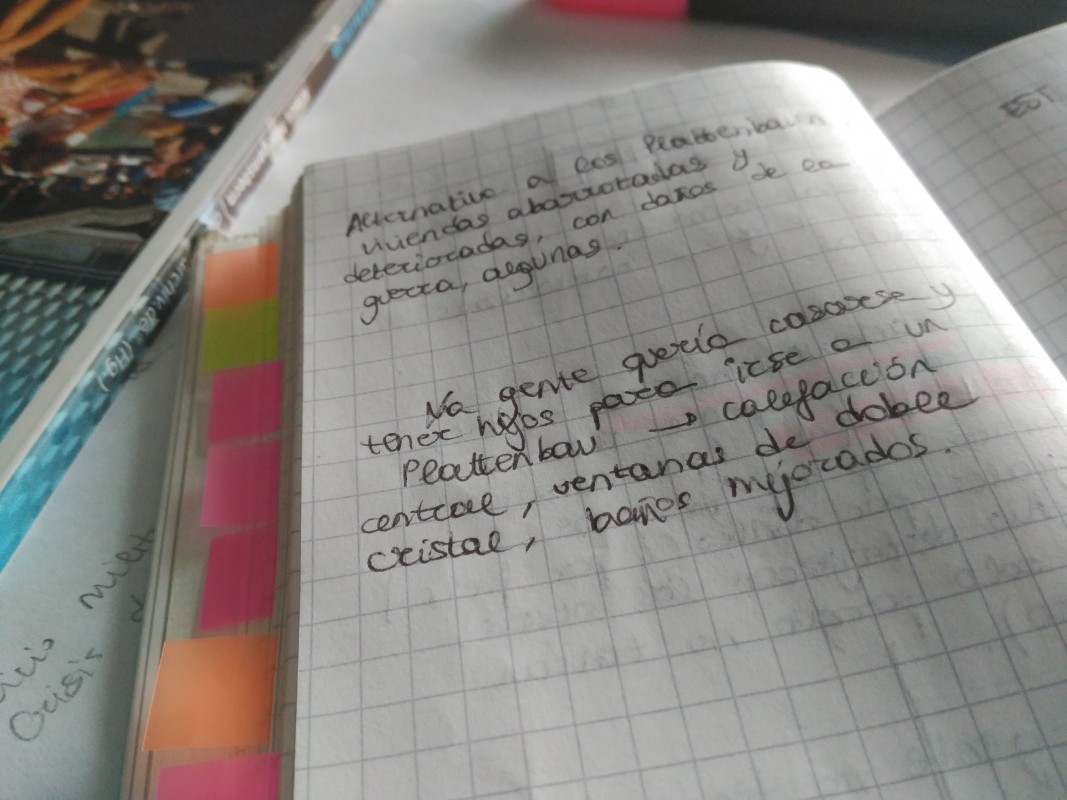 Alternativa a los Plattenbau
viviendas abarrotadas y
deterioradas, con daños de la
guerra, algunas.
La gente quería casarse y
tener hijos para irse a un
Plattenbau → calefacción
central, ventanas de doble
cristal, baños mejorados.
Crisis